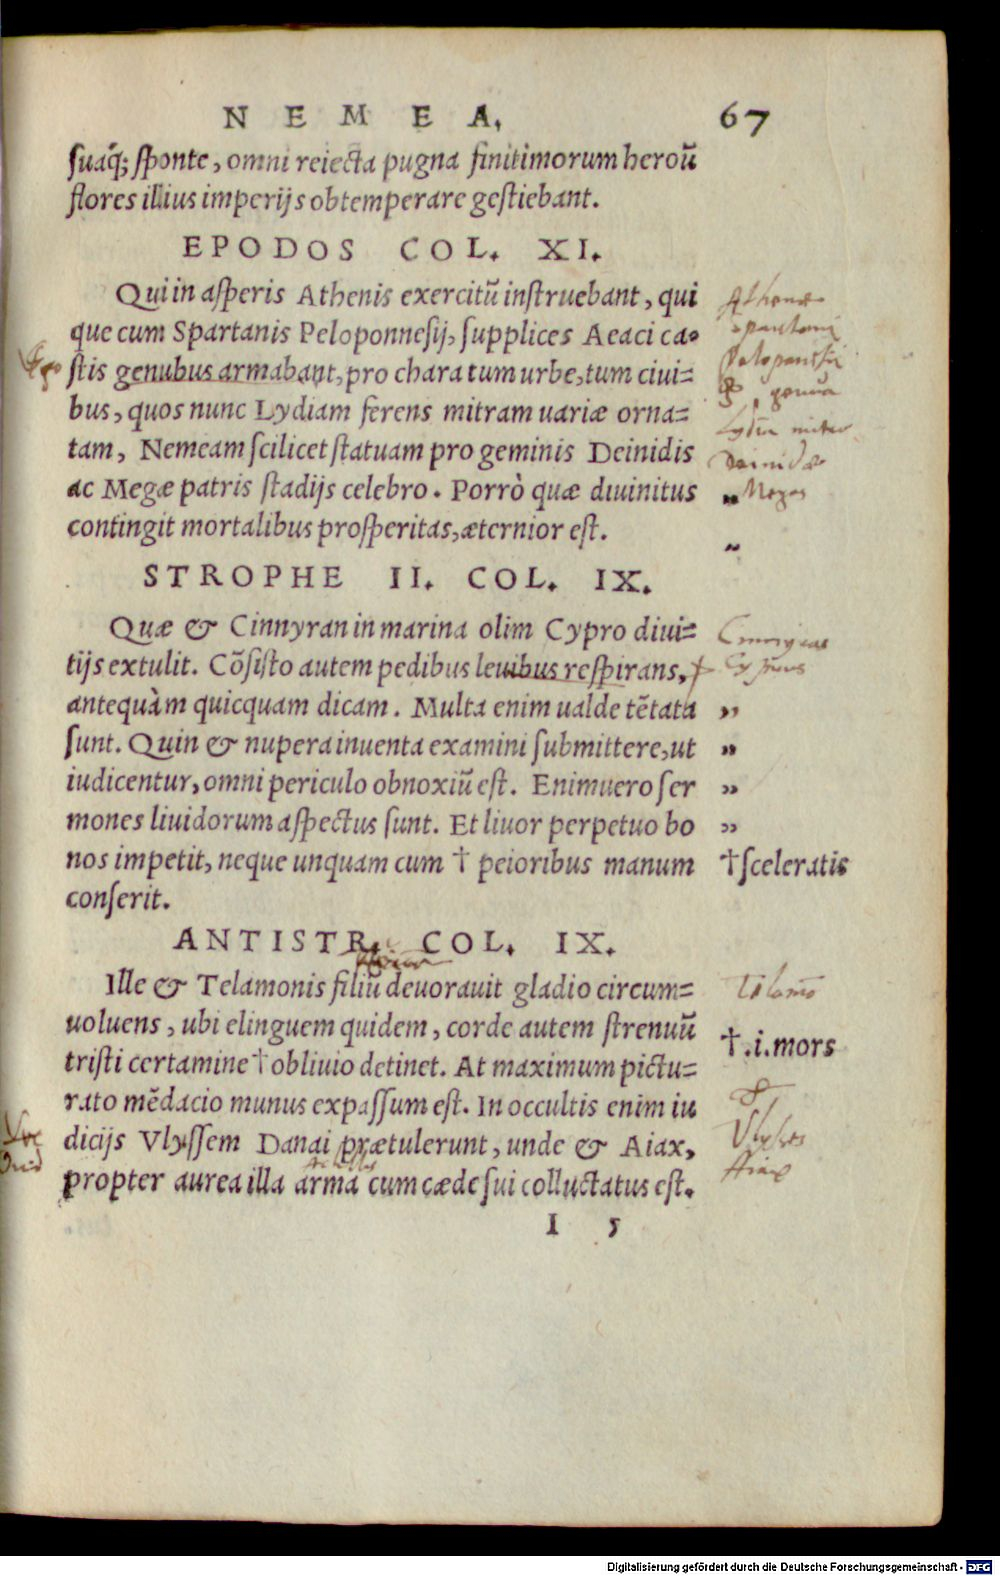 NEMEA. 67
suaq́; sponte, omni reiecta pugna finitimorum heroũ
flores illius imperijs obtemperare gestiebant.
EPODOS COL. XI.
Qui in asperis Athenis exercitũ instruebant, qui
que cum Spartanis Peloponnesij, supplices Aeaci ca-
stis genubus armabant, pro chara tum urbe, tum ciui-
bus, quos nunc Lydiam ferens mitram uariæ orna-
tam, Nemeam scilicet statuam pro geminis Deinidis
ac Megæ patris stadijs celebro. Porrò quæ diuinitus
contingit mortalibus prosperitas, æternior est.
Athenæ
Spartani
Lydia mitra
Deinidæ
„ Megas
„
STROPHE II. COL. IX.
Quæ & Cinnyran in marina olim Cypro diui-
tijs extulit. Cõsisto autem pedibus leuibus respirans,
antequàm quicquam dicam. Multa enim ualde tẽtata „
sunt. Quin & nupera inuenta examini submittere, ut „
iudicentur, omni periculo obnoxiũ est. Enimuero ser „
mones liuidorum aspectus sunt. Et liuor perpetuo bo „
nos impetit, neque unquam cum † peioribus manum †sceleratis
conserit.
Cyprus
ANTISTR. COL. IX.
Ille & Telamonis filiũ deuorauit gladio circum-
uoluens, ubi elinguem quidem, corde autem strenuũ
tristi certamine † obliuio detinet. At maximum pictu- †.i.mors
rato mẽdacio munus expassum est. In occultis enim iu
dicijs Vlyssem Danai prætulerunt, unde & Aiax,
propter aurea illa arma cum cæde sui colluctatus est.
Telamõ
Vlysses
Aiax
Achillis
I 5
Digitalisierung gefördert durch die Deutsche Forschungsgemeinschaft - DFG